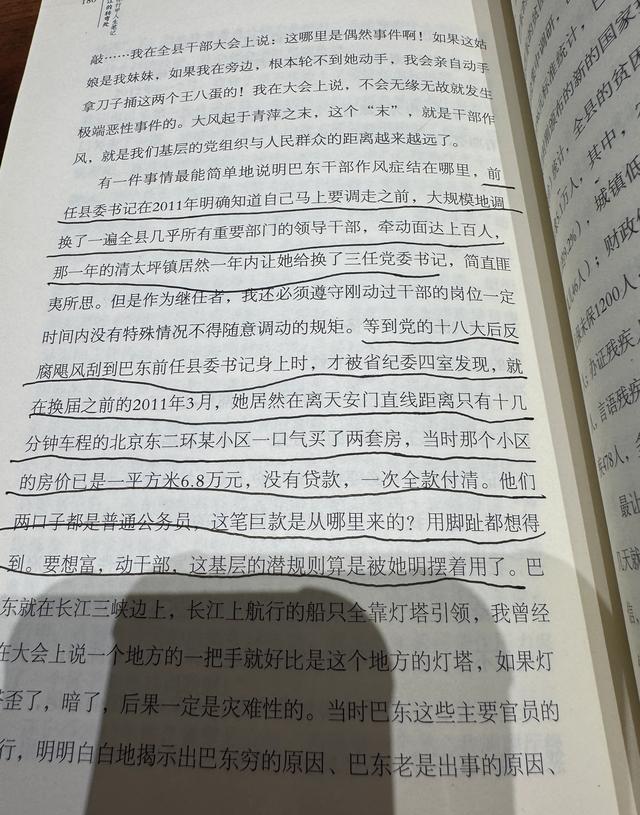 敲……我在全县干部大会上说：这哪里是偶然事件啊！如果这姑
娘是我妹妹，如果我在旁边，根本轮不到她动手，我会亲自动手
拿刀子捅这两个王八蛋的！我在大会上说，不会无缘无故就发生
极端恶性事件的。大风起于青萍之末，这个“末”，就是干部作
风，就是我们基层的党组织与人民群众的距离越来越远了。
有一件事情最能简单地说明巴东干部作风症结在哪里，前
任县委书记在2011年明确知道自己马上要调走之前，大规模地调
换了一遍全县几乎所有重要部门的领导干部，牵动面达上百人，
那一年的清太坪镇居然一年内让她给换了三任党委书记，简直匪
夷所思。但是作为继任者，我还必须遵守刚动过干部的岗位一定
时间内没有特殊情况不得随意调动的规矩。等到党的十八大后反
腐飓风刮到巴东前任县委书记身上时，才被省纪委四室发现，就
在换届之前的2011年3月，她居然在离天安门直线距离只有十几
分钟车程的北京东二环某小区一口气买了两套房，当时那个小区
的房价已是一平方米6.8万元，没有贷款，一次全款付清。他们
两口子都是普通公务员，这笔巨款是从哪里来的？用脚趾都想得
到。要想富，动干部，这基层的潜规则算是被她明摆着用了。巴
东就在长江三峡边上，长江上航行的船只全靠灯塔引领，我曾经
在大会上说一个地方的一把手就好比是这个地方的灯塔，如果灯
塔歪了，暗了，后果一定是灾难性的。当时巴东这些主要官员的
行，明明白白地揭示出巴东穷的原因、巴东老是出事的原因、